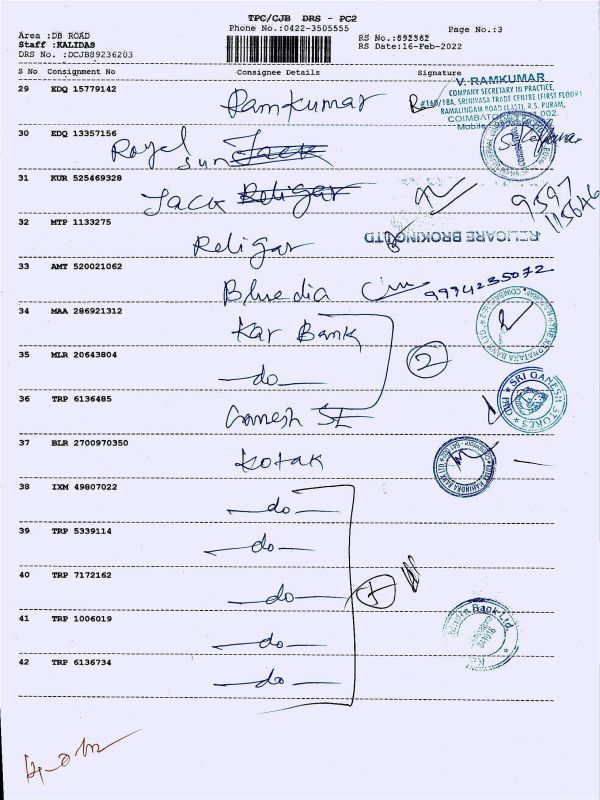 TPC/CJB DRS - PC2
Phone No.:0422-3505555
Page No.:3
Area :DB ROAD
Staff :KALIDAS
DRS No. :DCJB89236203
RS No.:892362
RS Date:16-Feb-2022
S No Consignment No Consignee Details Signature
29 EDQ 15779142 Ramkumar
V. RAMKUMAR
COMPANY SECRETARY IN PRACTICE,
#160/18A, SRINIVASA TRADE CENTRE (FIRST FLOOR)
RAMALINGAM ROAD (EAST), R.S. PURAM,
COIMBATORE 002.
Mobile
30 EDQ 13357156 Royal Sun Jack
31 KUR 525469328 Jack Religar
9597
115646
32 MTP 1133275 Religar
RELIGARE BROKING LTD
33 AMT 520021062 Bluedia 9994235072
34 MAA 286921312 Kar Bank
35 MLR 20643804 -do-
2
36 TRP 6136485 Ganesh St
SRI GANESH STORES
37 BLR 2700970350 Kotak
38 IXM 49807022 -do-
39 TRP 5339114 -do-
40 TRP 7172162 -do-
41 TRP 1006019 -do-
Bank Ltd.
42 TRP 6136734 -do-